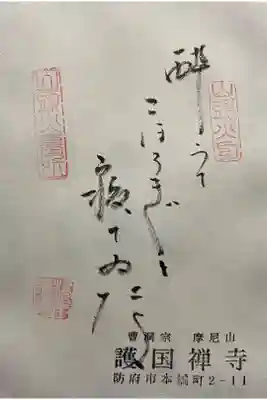 酔うて
こほろぎと
寝てゐた
曹洞宗 摩尼山
護国禅寺
防府市本橋町2-11